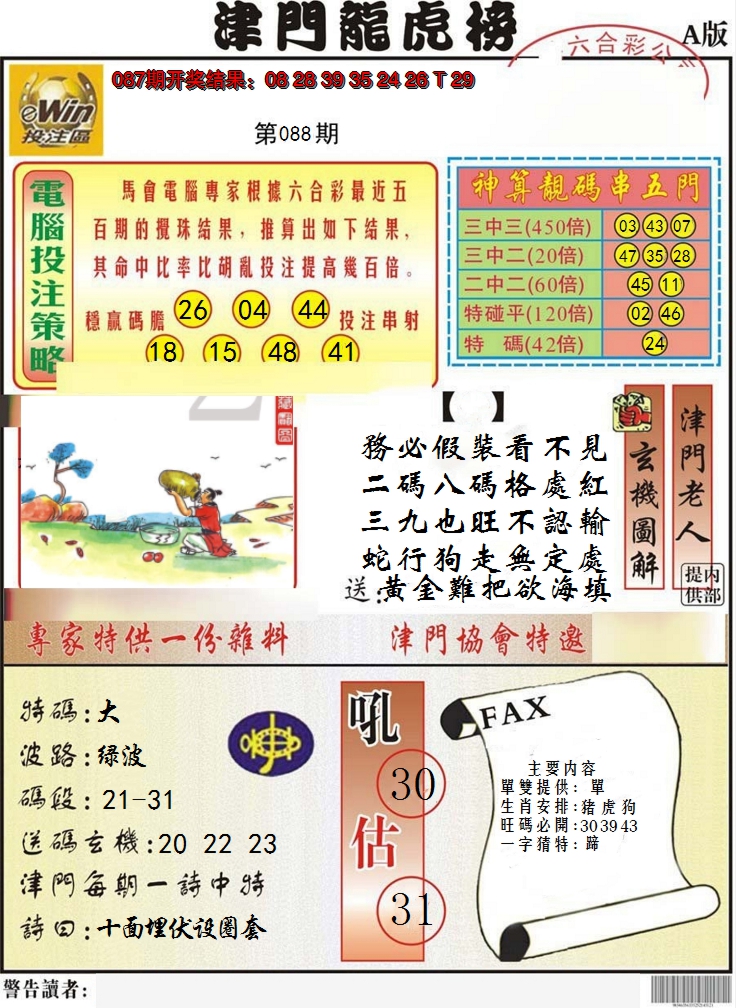 津門龍虎榜
六合彩公
A版
087期开奖结果：08 28 39 35 24 26 T 29
eWin
投注區
第088期
電腦投注策略
馬會電腦專家根據六合彩最近五
百期的攪珠结果，推算出如下结果，
其命中比率比胡亂投注提高幾百倍。
穩贏碼膽 26 04 44 投注串射
18 15 48 41
神算靚碼串五門
三中三(450倍) 03 43 07
三中二(20倍) 47 35 28
二中二(60倍) 45 11
特碰平(120倍) 02 46
特 碼(42倍) 24
【 】
務必假裝看不見
二碼八碼格處紅
三九也旺不認輸
蛇行狗走無定處
送:黃金難把欲海填
玄機圖解
津門老人
内部提供
專家特供一份雜料
津門協會特邀
特碼:大
波路:绿波
碼段:21-31
送碼玄機:20 22 23
津門每期一詩中特
詩曰:十面埋伏设圈套
吼
30
估
31
FAX
主要内容
單雙提供：單
生肖安排:豬虎狗
旺碼必開:30 39 43
一字猜特：蹄
警告讀者：